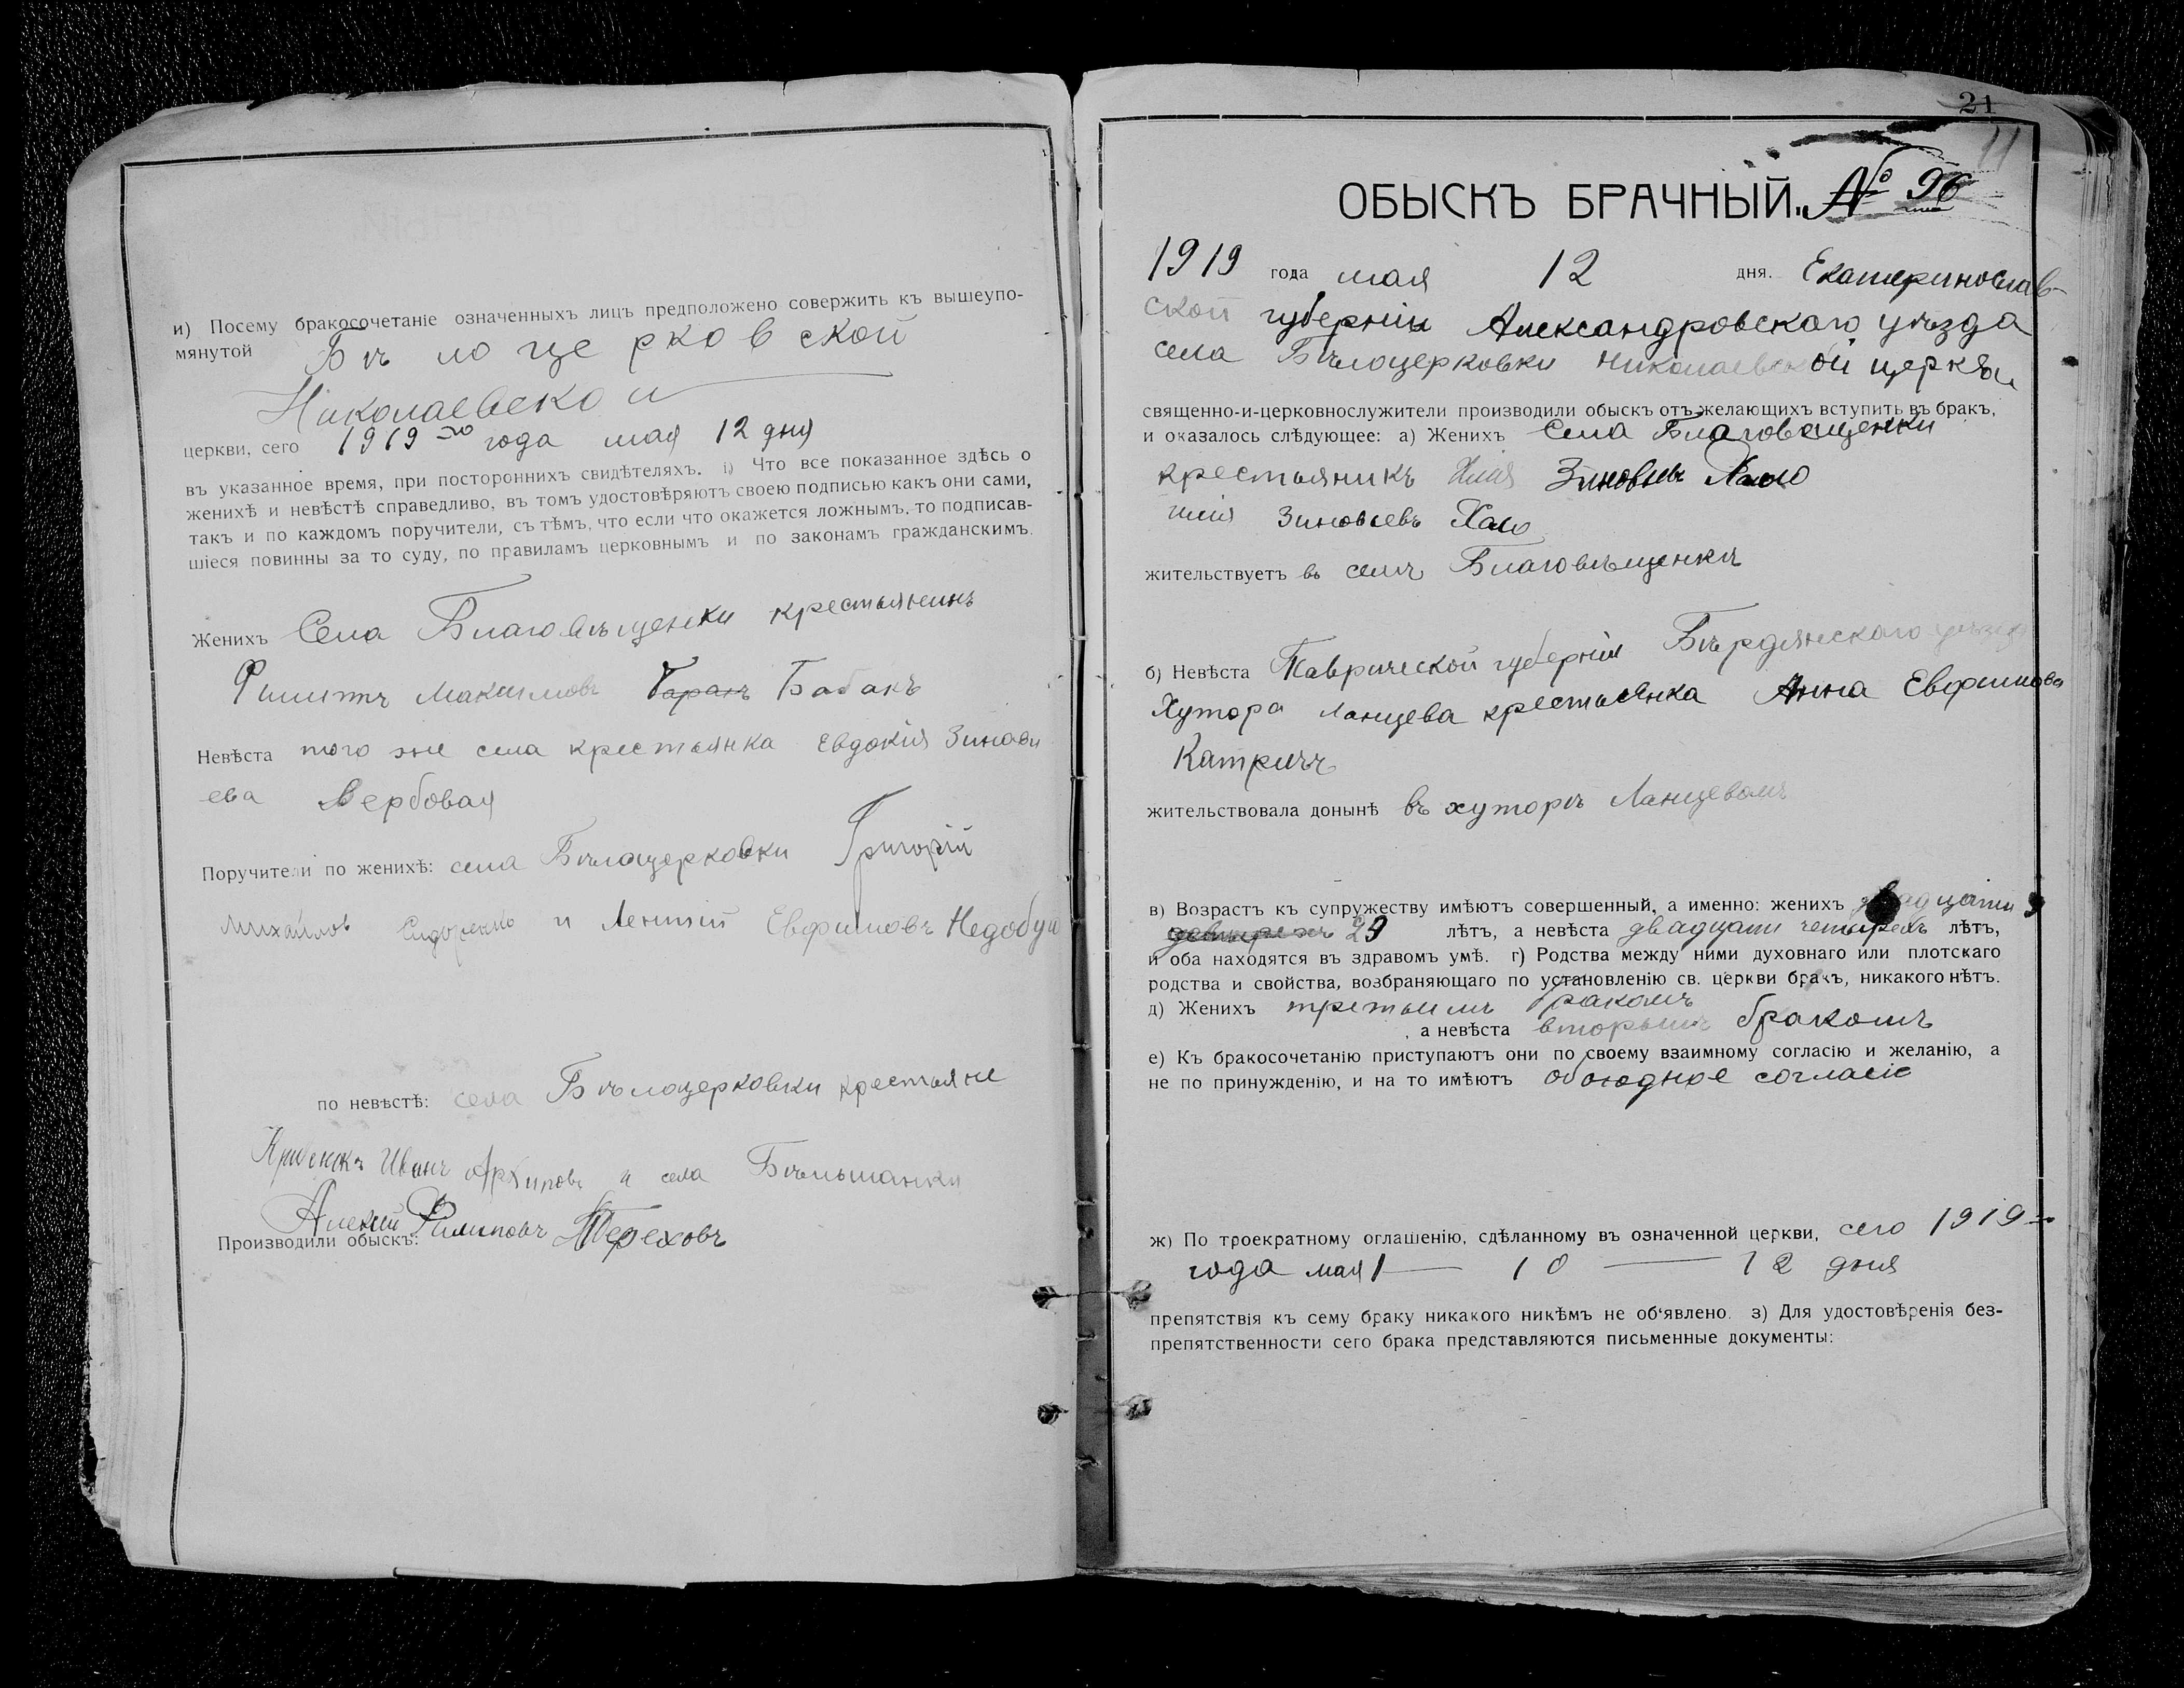 и) Посему бракосочетаніе означенныхъ лицъ предположено совержить къ вышеупо-
мянутой Бѣлоцерковской
Николаевской
церкви, сего 1919 го года мая 12 дня
въ указанное время, при постороннихъ свидѣтеляхъ. і) Что все показанное здѣсь о
женихѣ и невѣстѣ справедливо, въ томъ удостовѣряютъ своею подписью какъ они сами,
такъ и по каждомъ поручители, съ тѣмъ, что если что окажется ложнымъ, то подписав-
шіеся повинны за то суду, по правиламъ церковнымъ и по законамъ гражданскимъ.
Женихъ Села Благовѣщенки крестьянинъ
Филиппъ Максимовъ Таранъ Бабакъ
Невѣста того же села крестьянка Евдокія Зинови
ева Вербовая
Поручители по женихѣ: села Бѣлоцерковки Григорій
Михайловъ и Леонтій Евфимовъ Недобуй
по невѣстѣ: села Бѣлоцерковки крестьяне
Иванъ Архиповъ и села Бѣльманки
Алексѣй Филиповъ Тереховъ
Производили обыскъ:
21
11
ОБЫСКЪ БРАЧНЫЙ. № 96
1919 года мая 12 дня. Екатеринослав-
ской губерніи Александровскаго уѣзда
села Бѣлоцерковки Николаевской церкви
священно-и-церковнослужители производили обыскъ отъ желающихъ вступить въ бракъ,
и оказалось слѣдующее: а) Женихъ Села Благовѣщенки
крестьяникъ Илія Зиновьевъ Хало
Илія Зиновьевъ Хало
жительствуетъ въ селѣ Благовѣщенкѣ
б) Невѣста Таврической губерніи Бѣрдянскаго уѣзда
Хутора Ланцева крестьянка Анна Евфимова
Катричъ
жительствовала донынѣ въ хуторѣ Ланцевомъ
в) Возрастъ къ супружеству имѣютъ совершенный, а именно: женихъ двадцати 9
29 лѣтъ, а невѣста двадцати четырехъ лѣтъ,
и оба находятся въ здравомъ умѣ. г) Родства между ними духовнаго или плотскаго
родства и свойства, возбраняющаго по установленію св. церкви бракъ, никакого нѣтъ.
д) Женихъ третьимъ бракомъ
, а невѣста вторымъ бракомъ
е) Къ бракосочетанію приступаютъ они по своему взаимному согласію и желанію, а
не по принужденію, и на то имѣютъ обоюдное согласіе
ж) По троекратному оглашенію, сдѣланному въ означенной церкви, сего 1919
года мая 1 — 10 — 12 дня
препятствія къ сему браку никакого никѣмъ не об'явлено. з) Для удостовѣренія без-
препятственности сего брака представляются письменные документы: